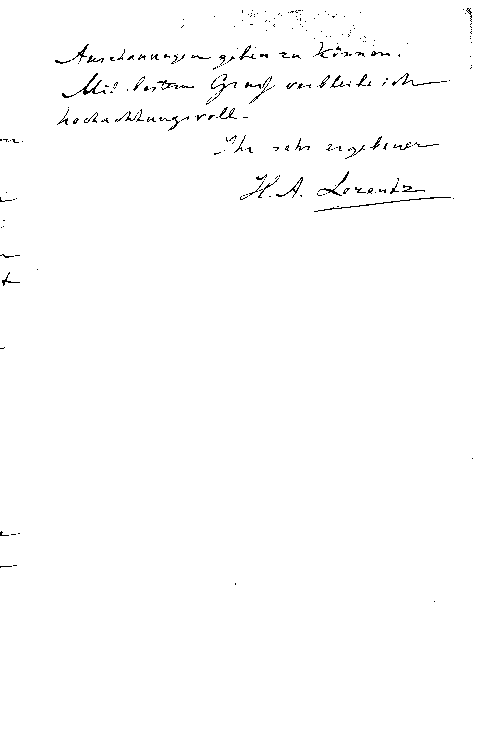 Anschauungen geben zu können.
Mit bestem Gruß verbleibe ich
hochachtungsvoll.
Ihr sehr ergebener
H. A. Lorentz